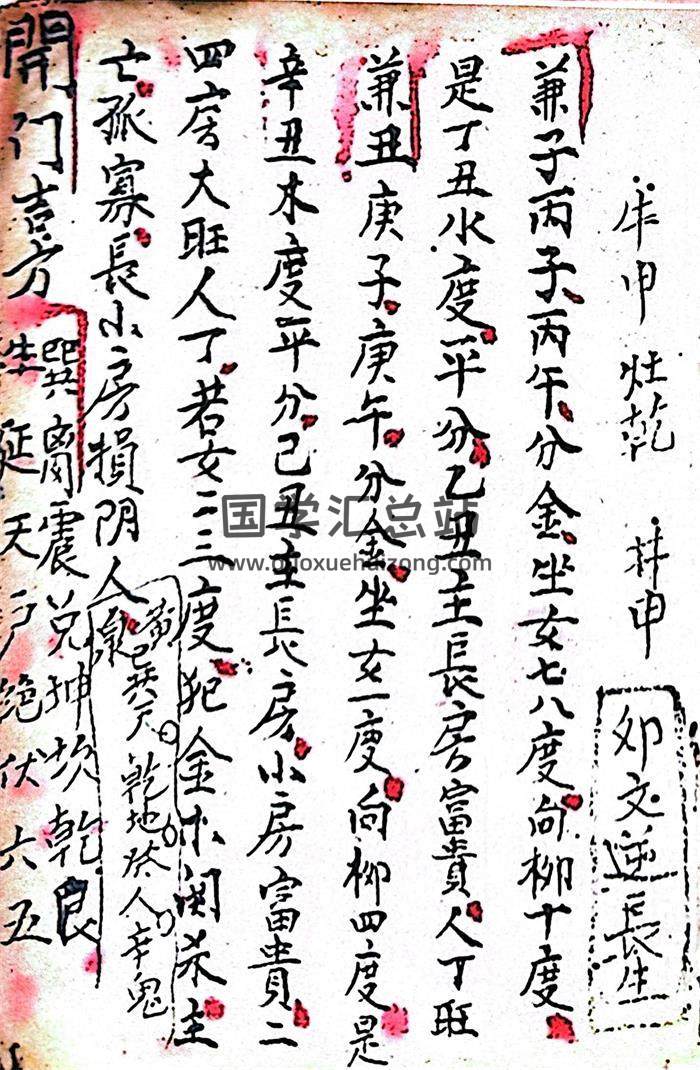 床申 灶乾 井申
卯交逆長生
兼子丙子丙午分金坐女七八度向柳十度
是丁丑水度平分乙丑主長房富貴人丁旺
兼丑庚子庚午分金坐女一度向柳四度是
辛丑木度平分己丑主長房小房富貴二
四房大旺人丁若女二三度犯金木関杀主
亡孤寡長小房損阴人
黃泉 巽天 乾地 癸人 辛鬼
開门吉方 巽离震兑坤坎乾艮
生延天 绝伏六五
国学汇总站
www.guoxuehuizong.com